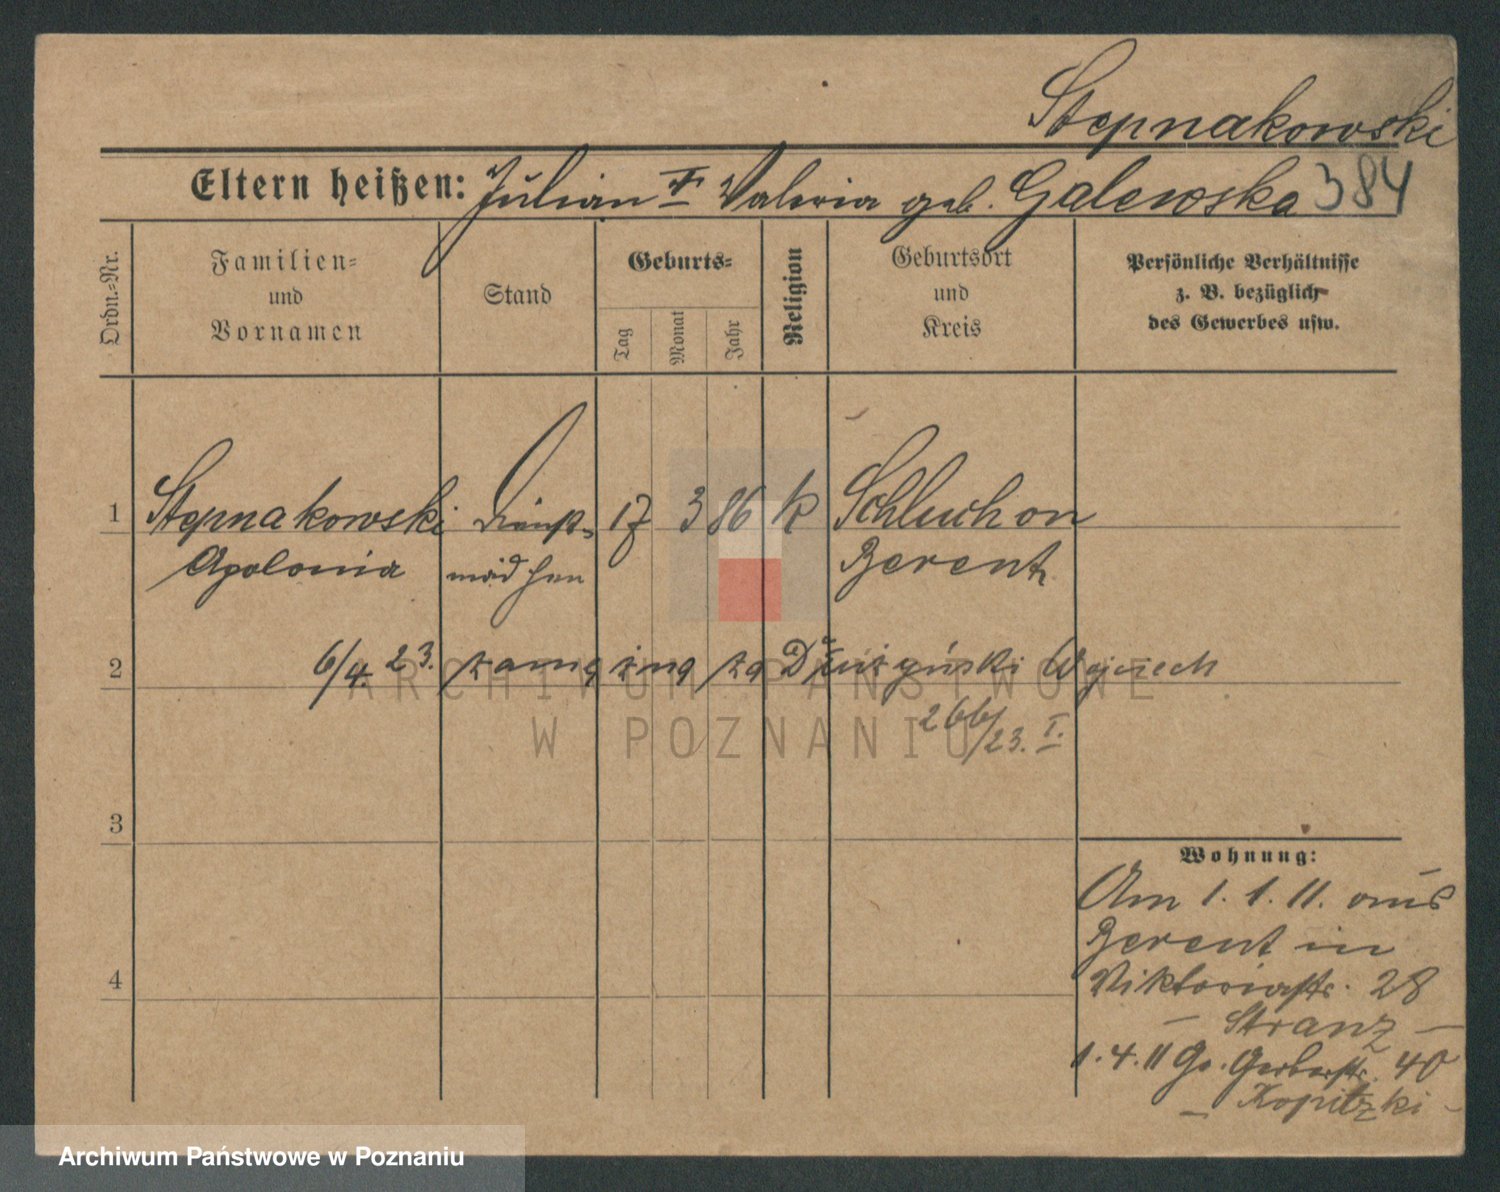 Stepnakowski
Eltern heißen: Julian + Valeria geb. Galewska 384
Ordn.=Nr.
Familien=
und
Vornamen
Stand
Geburts=
Tag
Monat
Jahr
Religion
Geburtsort
und
Kreis
Persönliche Verhältnisse
z. B. bezüglich
des Gewerbes usw.
1 Stepnakowski Dienst= 17 3 86 k Schluchon
Apolonia mädchen Berent
2 6/4. 23. zamężna za Wojciech
266/23. I.
3
Wohnung:
Am 1. 1. 11. aus
Berent in
Viktoriastr. 28
— Stranz —
4
1. 4. 11 Gr. Gerberstr. 40
— Kopitzki -
ARCHIWUM PAŃSTWOWE
W POZNANIU
Archiwum Państwowe w Poznaniu